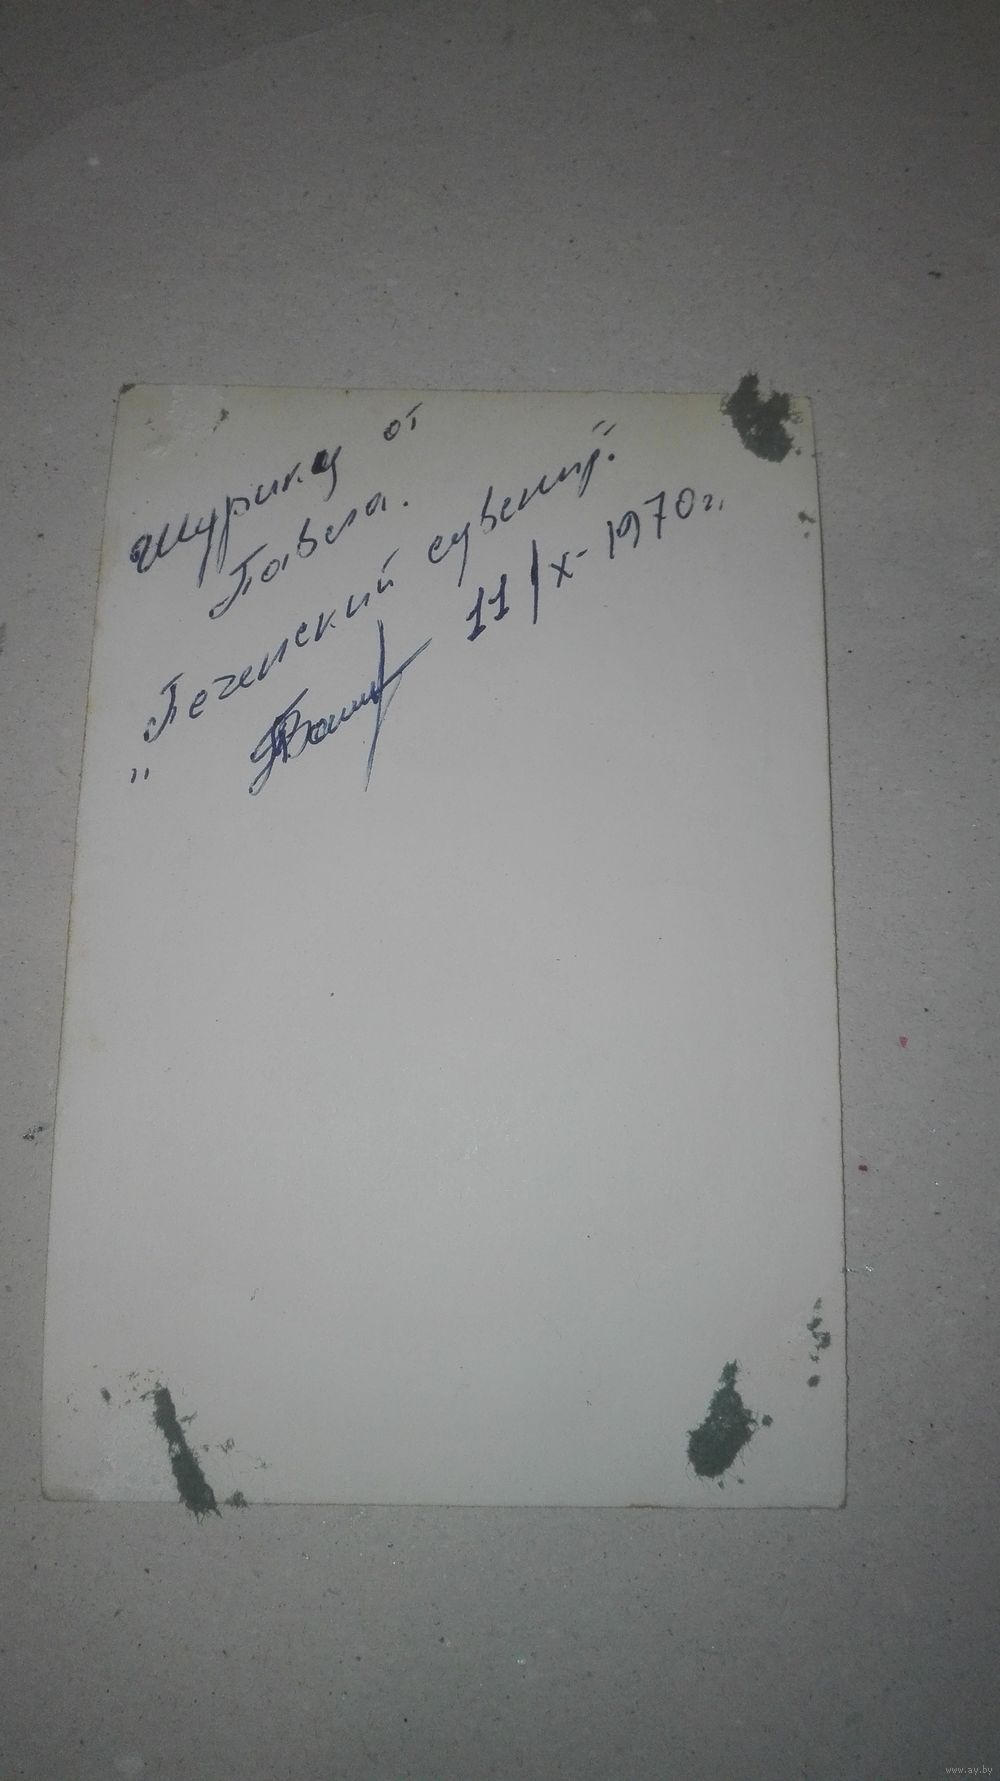 Шурику от
Павла.
„Печенский сувенир."
11/X-1970г.
www.ay.by